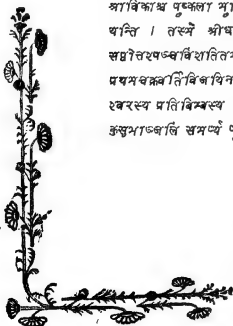 श्राविकाश्च पुष्कला
यन्ति । तस्मै
सप्तोत्तरपञ्चविंशतितम
प्रथमचक्रवर्तिविजयिन
श्वरस्य प्रतिबिम्बस्य
कुसुमाञ्जलिं समर्प्य